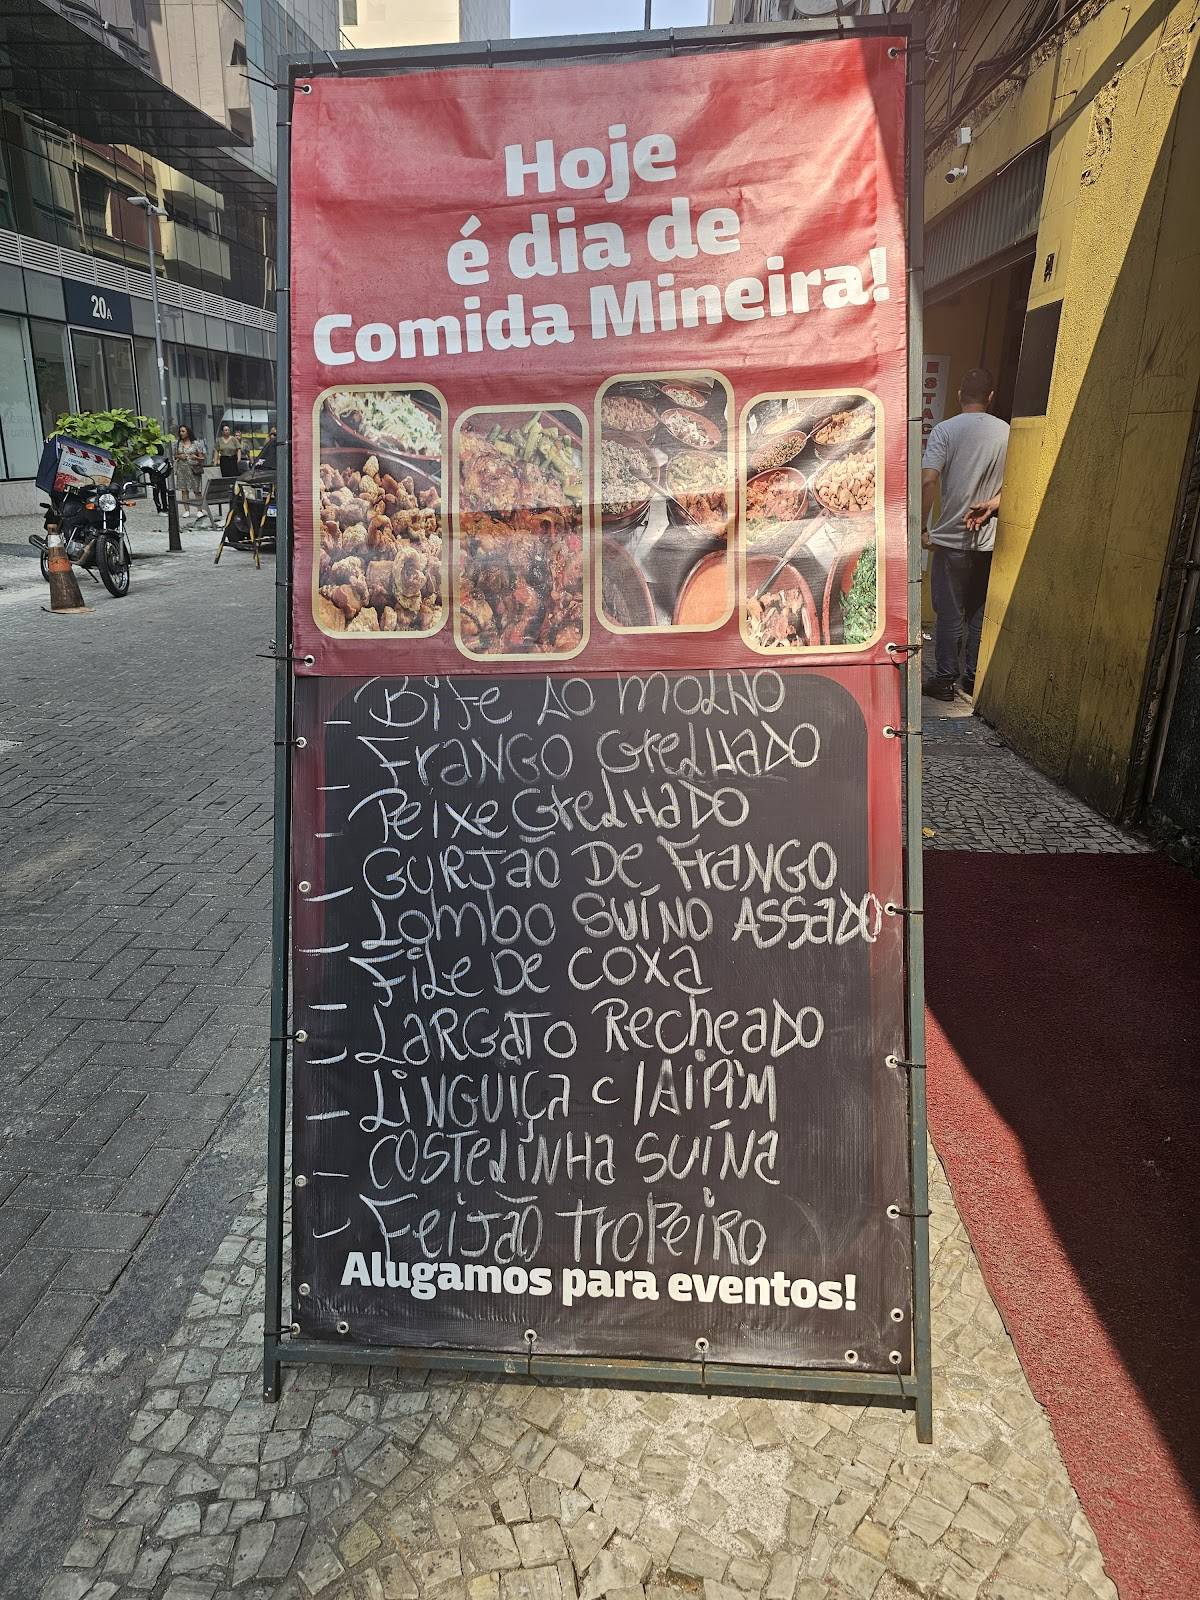 Hoje
é dia de
Comida Mineira!
20A
- Bife ao molho
- Frango Grelhado
- Peixe Grelhado
- Gurjão de Frango
- Lombo Suíno Assado
- File de coxa
- Largato Recheado
- Linguiça c/ Aipim
- Costelinha Suína
- Feijão Tropeiro
Alugamos para eventos!